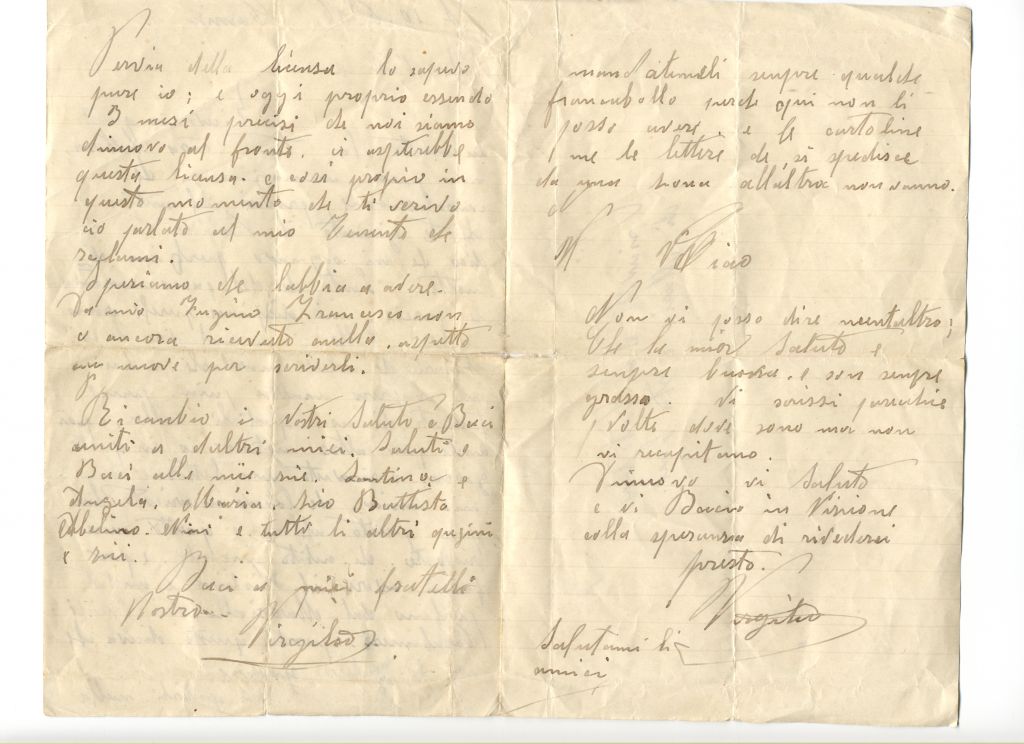 Per via della licensa lo sapevo
pure io; e oggi proprio essendo
3 mesi precisi che noi siamo
dinuovo al fronte. ci aspiterebbe
questa licensa. e così propio in
questo momento che ti scrivo
ciò parlato al mio Tenente che
reclami.
Speriamo che labbia a avere.
Da mio Zugino Francesco non
o ancora ricevuto nulla. aspetto
nuove per scriverli.
Ricambio i vostri Saluti e Baci
uniti a daltri miei. Saluti e
Baci alle mie zie. Santina e
Angela. Maria. Siro Battista
Abelino. Nini e tutti li altri qugini
e zii.
Baci ai miei fratelli
Vostro
Virgilio
mandatemeli sempre qualche
francobollo perche qui non li
posso avere. e le cartoline
me le lettere che si spedisce
da una zona all'altra non vanno.
Non vi posso dire nientaltro;
Che la mia Saluto e
sempre buona. e son sempre
grasso. Vi scrissi parechie
volte dove sono ma non
vi recapitano.
Dinuovo vi Saluto
e vi Bacio in Visione
colla speransa di rivederci
presto.
Virgilio
Salutami li
amici